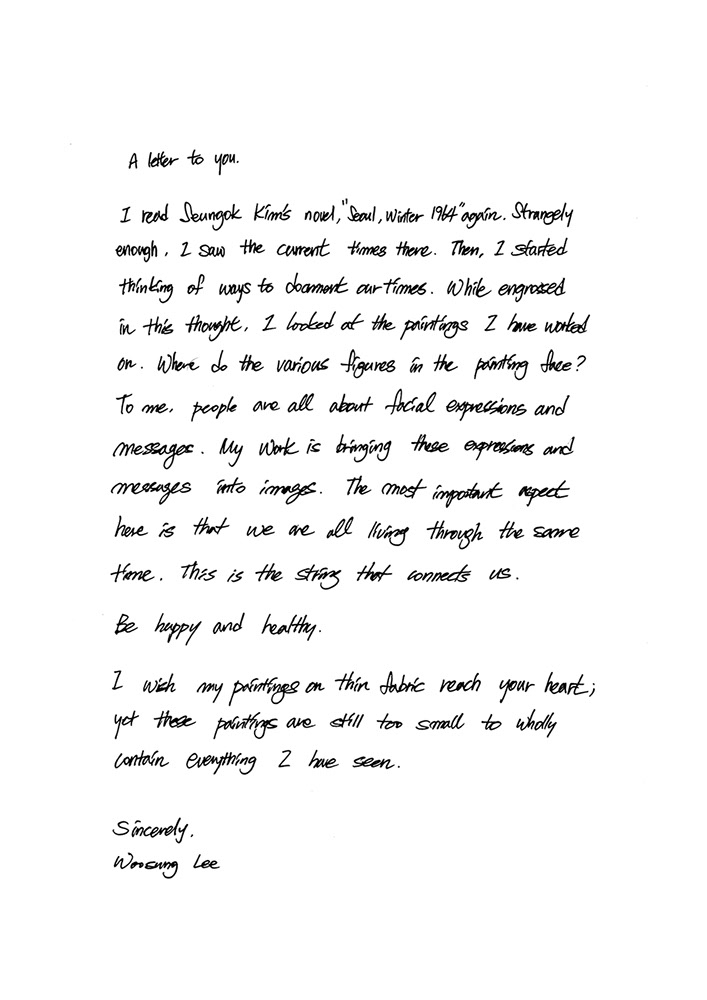 A letter to you.
I read Seungok Kim's novel, "Seoul, Winter 1964" again. Strangely
enough, I saw the current times there. Then, I started
thinking of ways to document our times. While engrossed
in this thought, I looked at the paintings I have worked
on. Where do the various figures in the painting face?
To me, people are all about facial expressions and
messages. My work is bringing these expressions and
messages into images. The most important aspect
here is that we are all living through the same
time. This is the string that connects us.
Be happy and healthy.
I wish my paintings on thin fabric reach your heart;
yet these paintings are still too small to wholly
contain everything I have seen.
Sincerely.
Woosung Lee